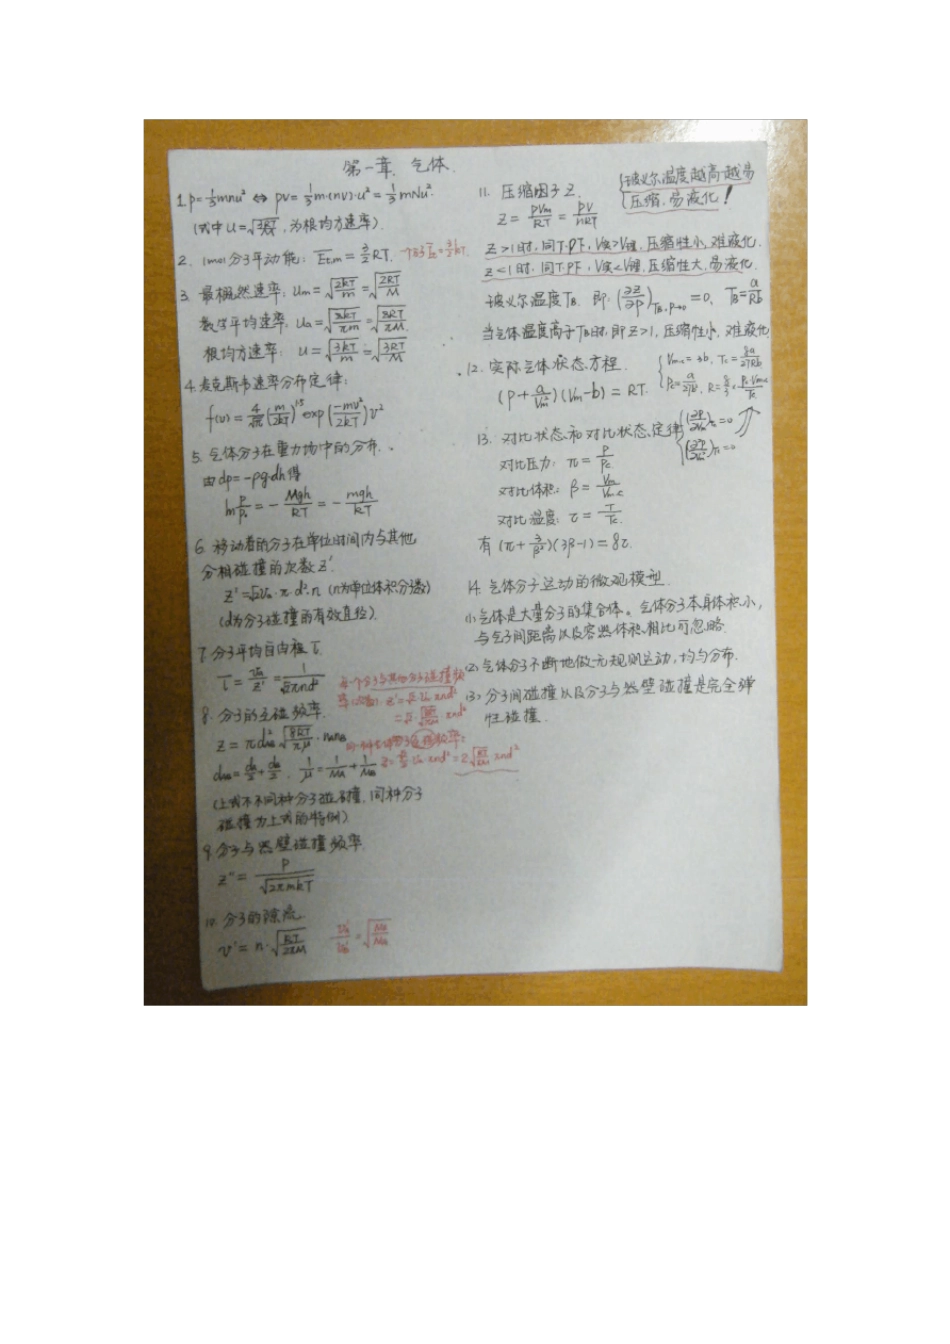 第一章 气体.
1. p=⅓mnu² ⇔ pV=⅓m·(nV)·u²=⅓mNu².
(式中 u=√(3RT/M), 为根均方速率).
2. 1mol分子平动能: Et,m=3/2 RT.
3. 最概然速率: um=√(2kT/m)=√(2RT/M)
数学平均速率: ua=√(8kT/πm)=√(8RT/πM).
根均方速率: u=√(3kT/m)=√(3RT/M)
4. 麦克斯韦速率分布定律:
f(v)=4/√π (m/2kT)^1.5 exp(-mv²/2kT) v²
5. 气体分子在重力场中的分布.
由 dp=-ρg·dh 得
ln p/p₀=-Mgh/RT=-mgh/kT
6. 移动着的分子在单位时间内与其他
分相碰撞的次数 z'.
z'=√2 va·π·d²·n (n为单位体积分子数)
(d为分子碰撞的有效直径).
7. 分子平均自由程 l̄.
l̄=va/z'=1/(√2πnd²)
每个分子与其他分子碰撞频
率: z'=√2·va·πnd²
=√2·√(8RT/πM)·πnd²
8. 分子的互碰频率.
z=πd²AB √(8RT/πμ)·nAnB
dAB=dA/2+dB/2, 1/μ=1/MA+1/MB
(上式为不同种分子碰撞, 同种分子
碰撞为上式的特例)
9. 分子与器壁碰撞频率.
z''=p/√(2πmkT)
10. 分子的隙流.
v'=n·√(RT/2πM)
11. 压缩因子 Z.
玻义尔温度越高越易
压缩, 易液化!
Z=pVm/RT=pV/nRT
Z>1时, 同T.P下, V实>V理, 压缩性小, 难液化.
Z<1时, 同T.P下, V实<V理, 压缩性大, 易液化.
玻义尔温度TB. 即: (∂Z/∂p)TB,p→0=0, TB=a/Rb
当气体温度高于TB时, 即Z>1, 压缩性小, 难液化
12. 实际气体状态方程.
Vm,c=3b, Tc=8a/27Rb
(p+a/Vm²)(Vm-b)=RT.
Pc=a/27b², R=8/3×PcVm,c/Tc
13. 对比状态和对比状态定律
对比压力: π=p/pc
对比体积: β=Vm/Vm,c
对比温度: τ=T/Tc.
有 (π+3/β²)(3β-1)=8τ.
14. 气体分子运动的微观模型.
(1) 气体是大量分子的集合体。气体分子本身体积小,
与气子间距离以及容器体积相比可忽略.
(2) 气体分子不断地做无规则运动, 均匀分布.
(3) 分子间碰撞以及分子与器壁碰撞是完全弹
性碰撞.